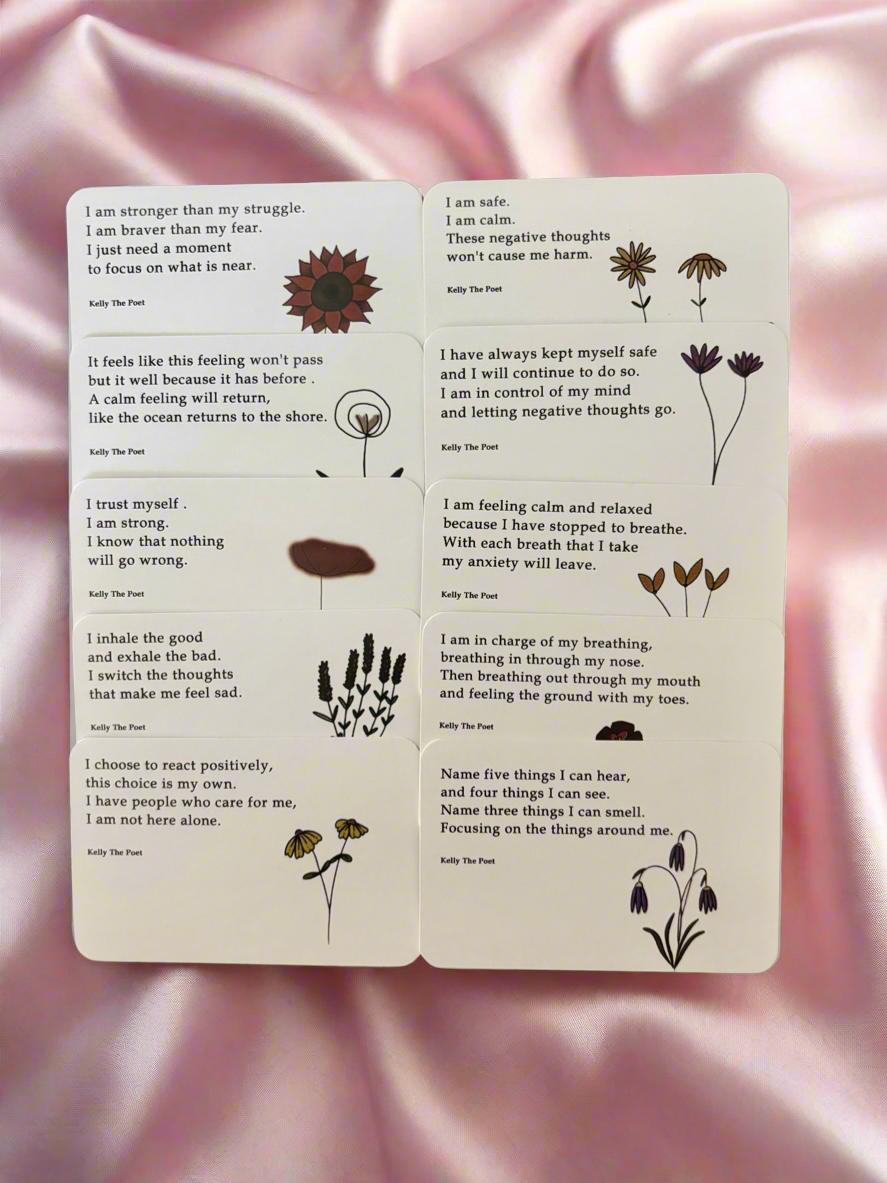 I am stronger than my struggle.
I am braver than my fear.
I just need a moment
to focus on what is near.
Kelly The Poet
I am safe.
I am calm.
These negative thoughts
won't cause me harm.
Kelly The Poet
It feels like this feeling won't pass
but it well because it has before .
A calm feeling will return,
like the ocean returns to the shore.
Kelly The Poet
I have always kept myself safe
and I will continue to do so.
I am in control of my mind
and letting negative thoughts go.
Kelly The Poet
I trust myself .
I am strong.
I know that nothing
will go wrong.
Kelly The Poet
I am feeling calm and relaxed
because I have stopped to breathe.
With each breath that I take
my anxiety will leave.
Kelly The Poet
I inhale the good
and exhale the bad.
I switch the thoughts
that make me feel sad.
Kelly The Poet
I am in charge of my breathing,
breathing in through my nose.
Then breathing out through my mouth
and feeling the ground with my toes.
Kelly The Poet
I choose to react positively,
this choice is my own.
I have people who care for me,
I am not here alone.
Kelly The Poet
Name five things I can hear,
and four things I can see.
Name three things I can smell.
Focusing on the things around me.
Kelly The Poet